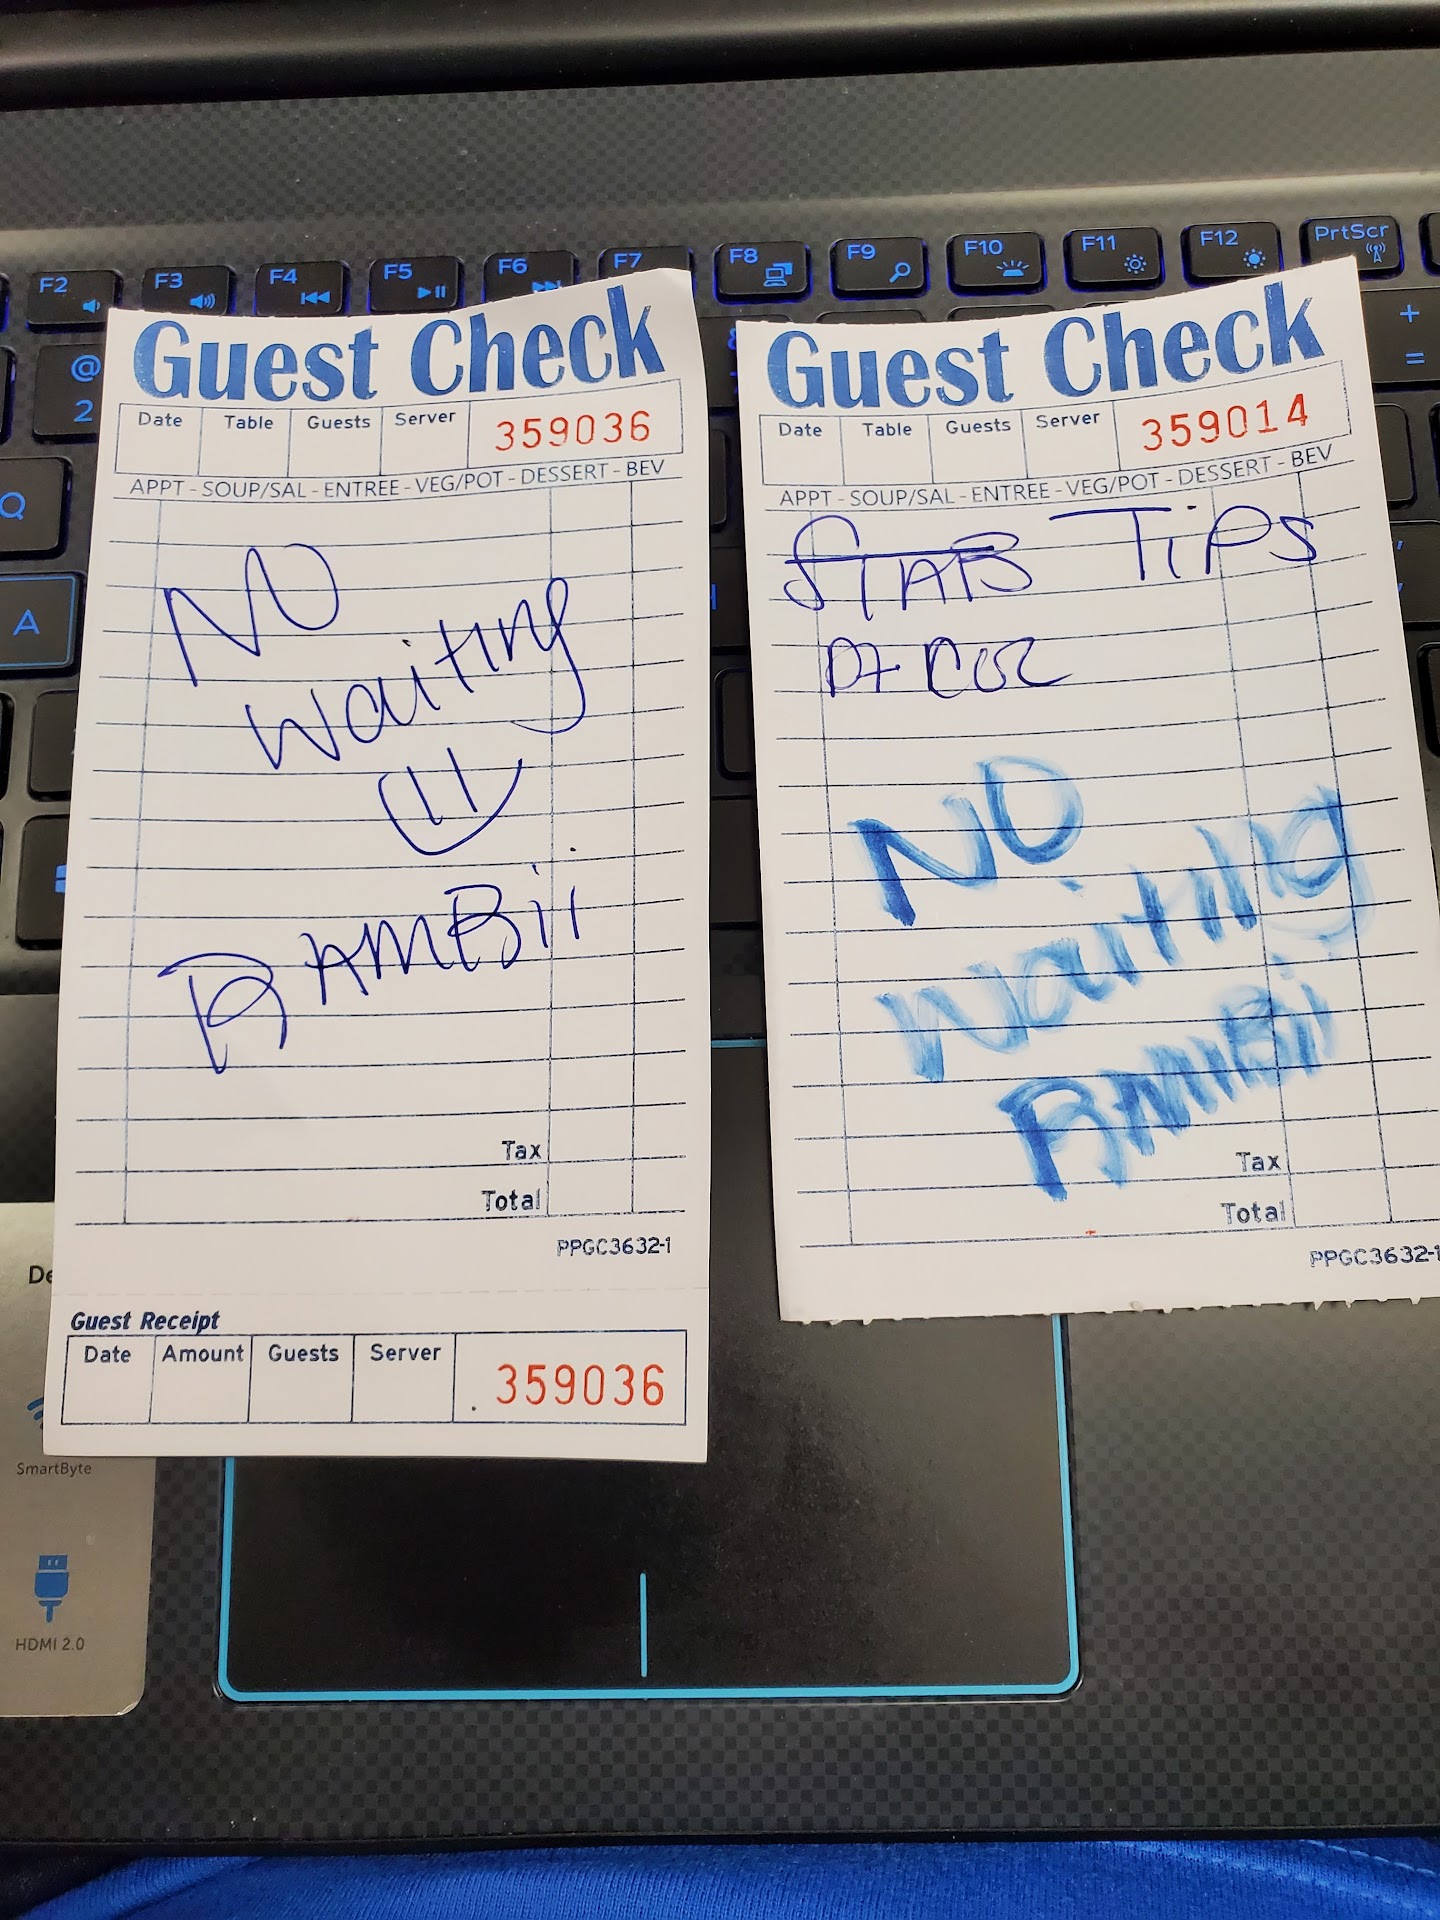 F2 F3 F4 F5 F6 F7 F8 F9 F10 F11 F12 PrtScr
@
2
+
=
Q
A
Guest Check
Date Table Guests Server 359036
APPT - SOUP/SAL - ENTREE - VEG/POT - DESSERT - BEV
NO
waiting
RAMBii
Tax
Total
PPGC3632-1
Guest Receipt
Date Amount Guests Server 359036
Guest Check
Date Table Guests Server 359014
APPT - SOUP/SAL - ENTREE - VEG/POT - DESSERT - BEV
Tips
NO
Waiting
RAMBii
Tax
Total
PPGC3632-1
De
SmartByte
HDMI 2.0